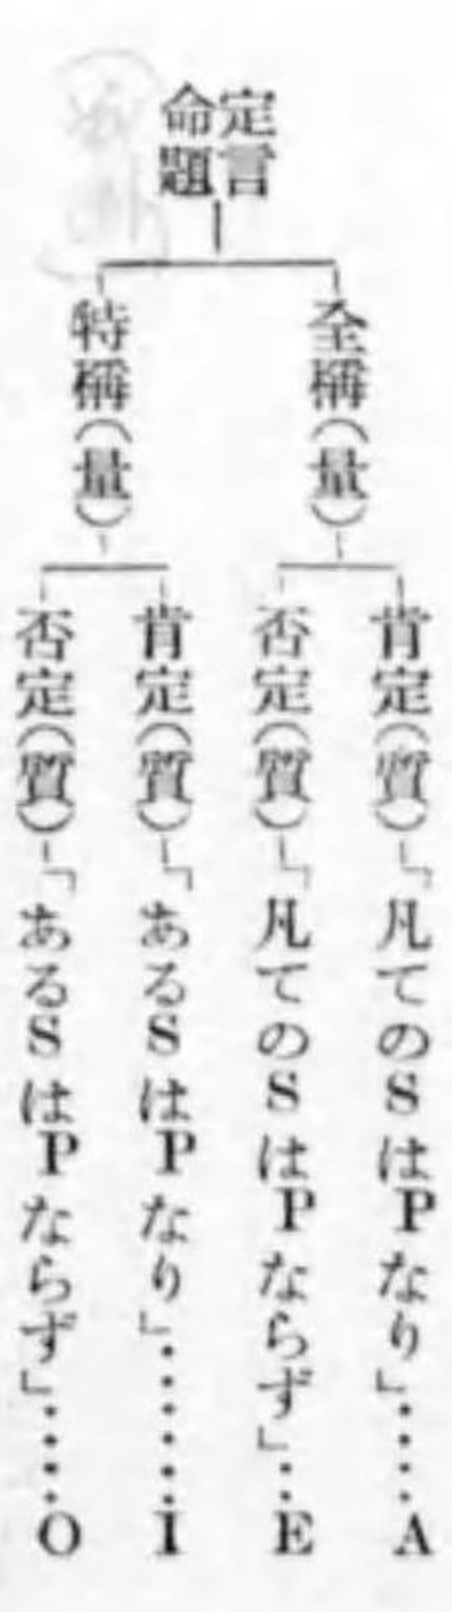 定言
命題
全稱（量）
肯定（質）「凡てのSはPなり」‥‥A
否定（質）「凡てのSはPならず」‥E
特稱（量）
肯定（質）「あるSはPなり」‥‥‥I
否定（質）「あるSはPならず」‥‥O